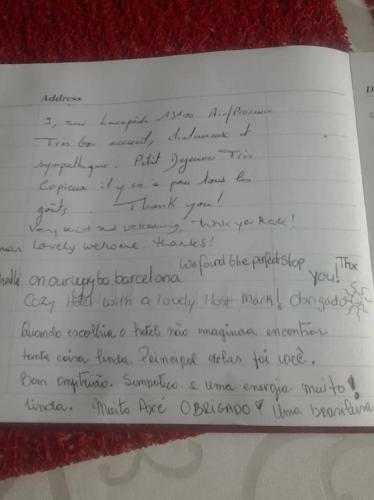 Address
D
3, rue Lacépède 13100 Aix/Provence
Très bon accueil, chaleureux et
sympathique. Petit Dejeuner Très
Copieux il y en a pour tous les
goûts. Thank you!
Very kind and welcoming, thank you Mark!
Lovely welcome. thanks!
We found the perfect stop
on our way to barcelona
you! Thx
Cozy Hotel with a lovely Host Mark! Obrigado
Quando escolhia o hotel não imaginava encontrar
tanta coisa linda. Principal delas foi você.
Bom anfitrião. Simpatico e uma energia muito!
linda. Muito Axé OBRIGADO! Uma brasileira